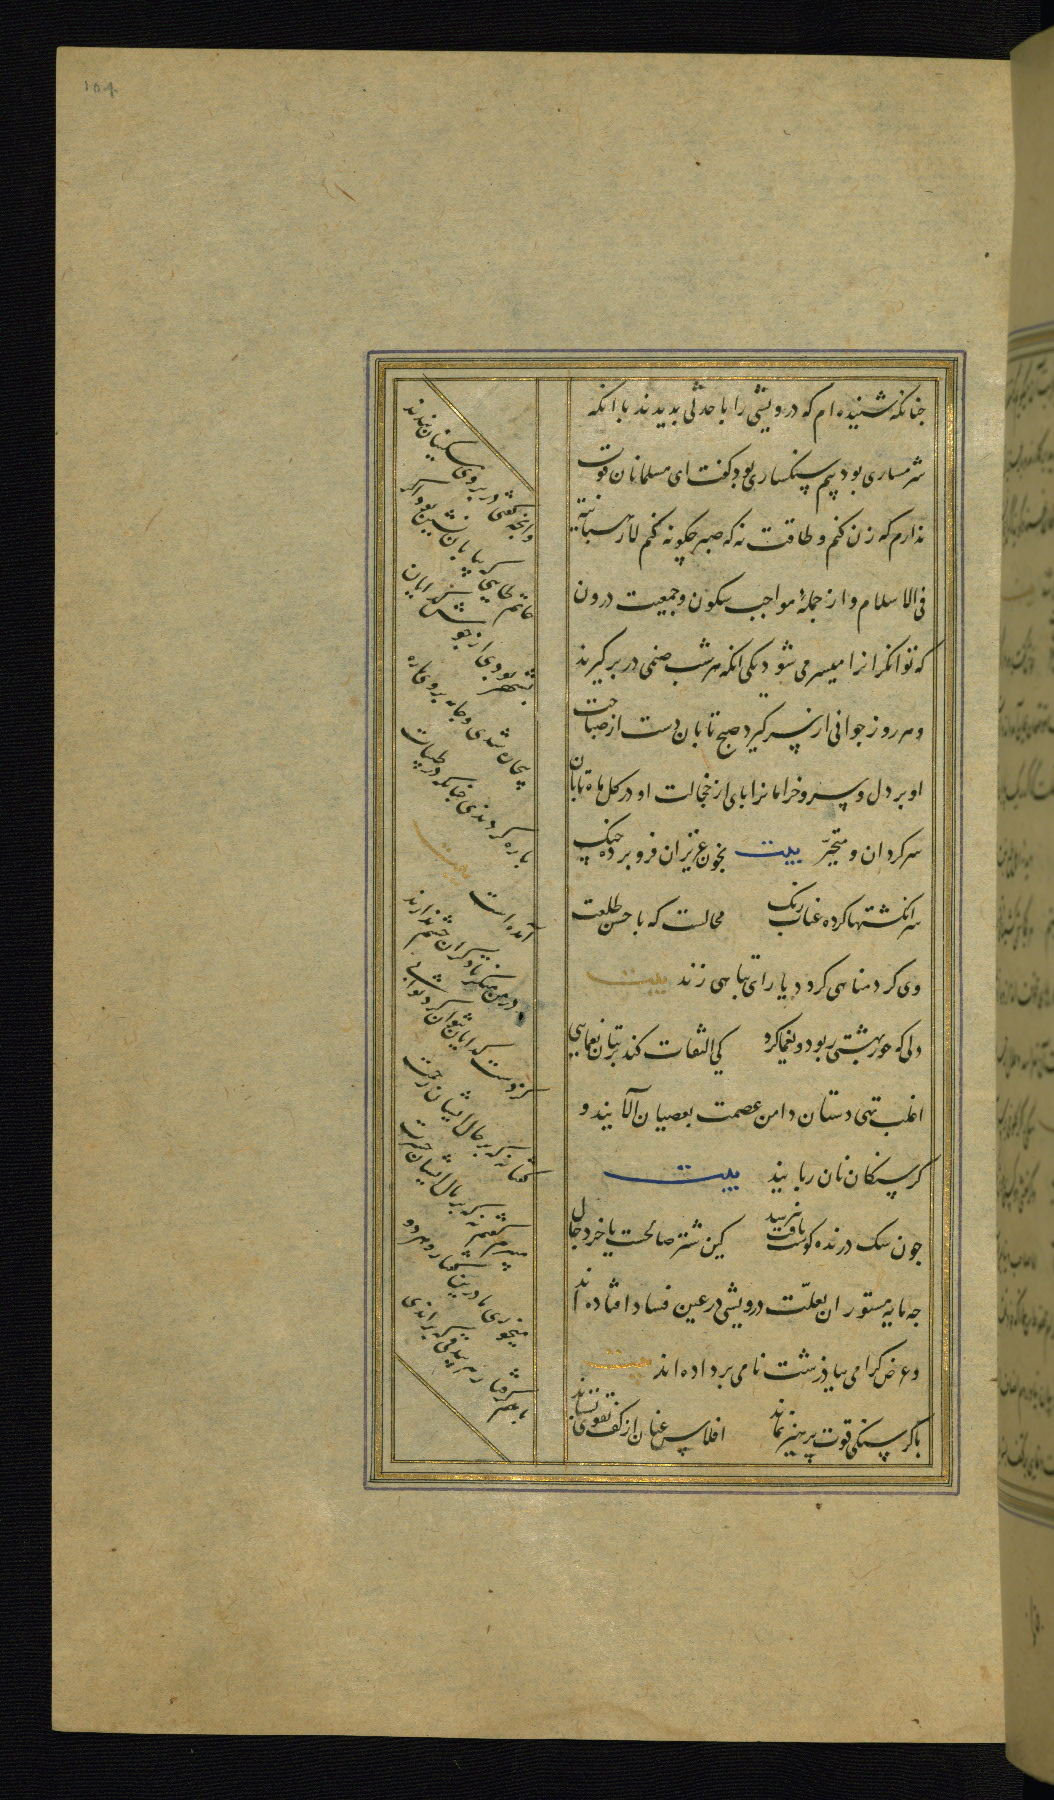 ۱۰۴
جنانکه شنیده ام که درویشی را با حدثی بدیدند با انکه
شرمساری بود بیم سنکساری بود کفت ای مسلمانان قوت
ندارم که زن کنم و طاقت نه که صبر چکونه کنم لا رهبانیة
فی الاسلام و از جملهٔ مواجب سکون و جمعیت درون
که توانکرانرا میسر می شود یکی انکه هر شب صنمی در بر کیرند
و هر روز جوانی از سر کیرد صبح تابان دست از صباحت
او بر دل و سرو خرامانرا پای از خجالت او در کل ماه تابان
سرکردان و متحیّر بیت بخون عزیزان فرو برده چنک
سر انکشتها کرده عناب رنک محالست که با حسن طلعت
وی کرد مناهی کردد یا رای تباهی زند بیت
دلی که حور بهشتی ربود و یغما کرد کی التفات کند بر بتان یغمایی
اغلب تهی دستان دامن عصمت بعصیان آلایند و
کرسنکان نان ربایند بیت
جون سک درنده کوشت یافت نپرسد کین شتر صالحست یا خر دجال
جه مایه مستوران بعلّت درویشی در عین فساد افتاده اند
و عرض کرامی بباد زشت نامی برداده اند بیت
با کرسنکی قوت پرهیز نماند افلاس عنان از کف تقوی بستاند
وانچه کفتی در بروی مسکینان بندند
حاتم طایی که بیابان نشین بود اکر
بشهر بودی از جوش کدایان
بیچاره شدی و جامه بروی پاره
پاره کردندی چنانکه در طیبات
آمده است بیت
در من منکر تا دکران چشم ندارند
کز دست کدایان نتوان کرد ثوابی
کفتا نه که بر حال ایشان رحمت
میبرم کفتم نه که بر مال ایشان حسرت
میخوری ما درین کفتار و هر دو
بهم کرفتار هر بیدقی که براندی